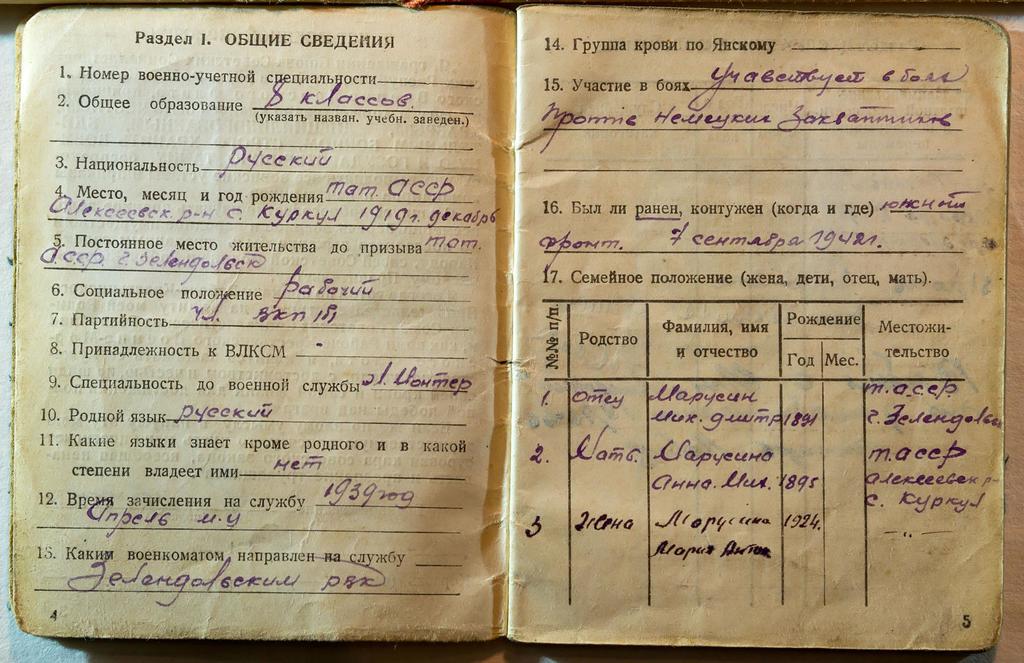 Раздел I. ОБЩИЕ СВЕДЕНИЯ
1. Номер военно-учетной специальности
2. Общее образование 8 классов.
(указать назван. учебн. заведен.)
3. Национальность русский
4. Место, месяц и год рождения тат. АССР
Алексеевск. р-н с. Куркул 1919г. декабрь
5. Постоянное место жительства до призыва тат.
АССР. г. Зелендольск
6. Социальное положение рабочий
7. Партийность чл. ВКП
8. Принадлежность к ВЛКСМ -
9. Специальность до военной службы Эл. Монтер
10. Родной язык русский
11. Какие языки знает кроме родного и в какой
степени владеет ими нет
12. Время зачисления на службу 1939 год
Апрель м-ц
13. Каким военкоматом направлен на службу
Зелендольским рвк
4
14. Группа крови по Янскому
15. Участие в боях Учавствует в боях
Против Немецких Захватчиков
16. Был ли ранен, контужен (когда и где) южный
фронт. 7 сентября 1942г.
17. Семейное положение (жена, дети, отец, мать).
№№ п/п. Родство Фамилия, имя и отчество Рождение Год Мес. Местожи-
тельство
1. отец Марусин т. АССР
Мих. Дмитр 1891 г. Зелендольск
2. Мать. Марусина т. АССР
Анна. Мих. 1895 Алексеевск р-
с. Куркул
3 Жена Марусина 1924. -"-
Мария Антон
5